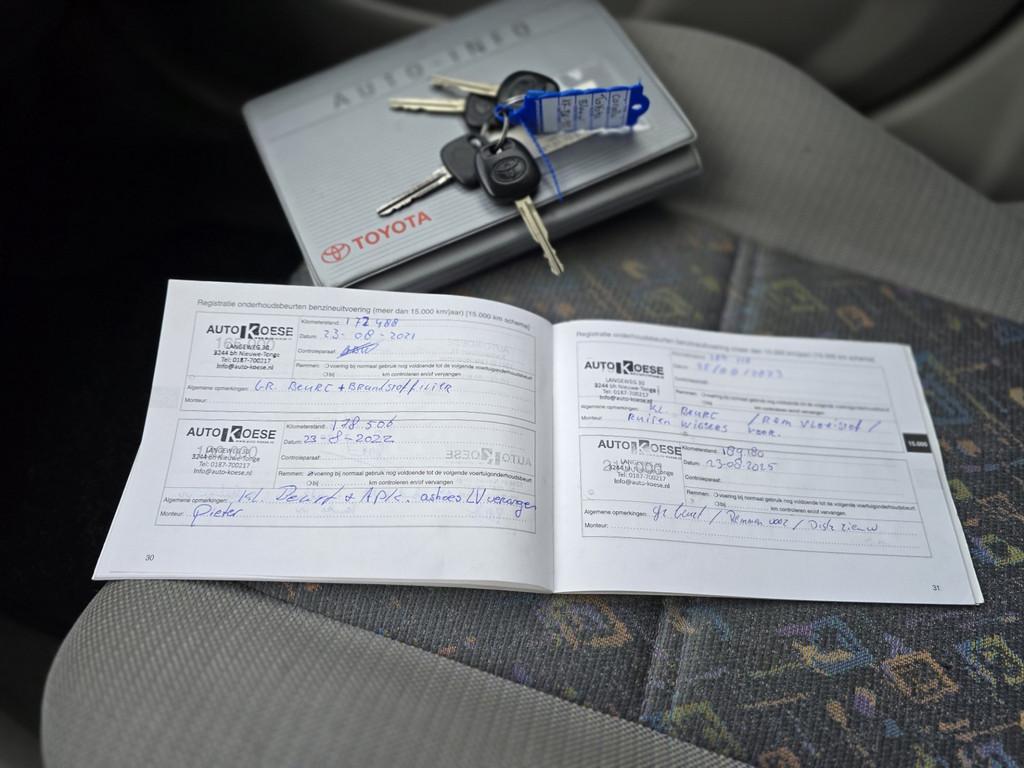 AUTO-INFO
TOYOTA
Registratie onderhoudsbeurten benzineuitvoering (meer dan 15.000 km/jaar) [15.000 km schema]
AUTO KOESE
LANGEWEG 30
3244 bh Nieuwe-Tonge
Tel: 0187-700217
Info@auto-koese.nl
Kilometerstand: 172 488
Datum: 23-08-2021
Controleparaaf:
Remmen: voering bij normaal gebruik nog voldoende tot de volgende voertuigonderhoudsbeurt
bij km controleren en/of vervangen
Algemene opmerkingen: GR. Beurt + Brandstoffilter
Monteur:
AUTO KOESE
LANGEWEG 30
3244 bh Nieuwe-Tonge
Tel: 0187-700217
Info@auto-koese.nl
Kilometerstand: 178.506
Datum: 23-8-2022
Controleparaaf:
Remmen: voering bij normaal gebruik nog voldoende tot de volgende voertuigonderhoudsbeurt
bij km controleren en/of vervangen
Algemene opmerkingen: Kl. Beurt + APK. LV vervangen
Monteur: Pieter
30
Registratie onderhoudsbeurten benzineuitvoering (meer dan 15.000 km/jaar) [15.000 km schema]
AUTO KOESE
LANGEWEG 30
3244 bh Nieuwe-Tonge
Tel: 0187-700217
Info@auto-koese.nl
Datum:
Controleparaaf:
Remmen: voering bij normaal gebruik nog voldoende tot de volgende voertuigonderhoudsbeurt
bij km controleren en/of vervangen
Algemene opmerkingen: KL Beurt / Rem vloeistof /
Monteur: Ruiten wissers voor.
15.000
AUTO KOESE
LANGEWEG 30
3244 bh Nieuwe-Tonge
Tel: 0187-700217
Info@auto-koese.nl
Kilometerstand: 189.180
Datum: 23-08-2025
Controleparaaf:
Remmen: voering bij normaal gebruik nog voldoende tot de volgende voertuigonderhoudsbeurt
bij km controleren en/of vervangen
Algemene opmerkingen: gr beurt / Remmen voor /
Monteur:
31